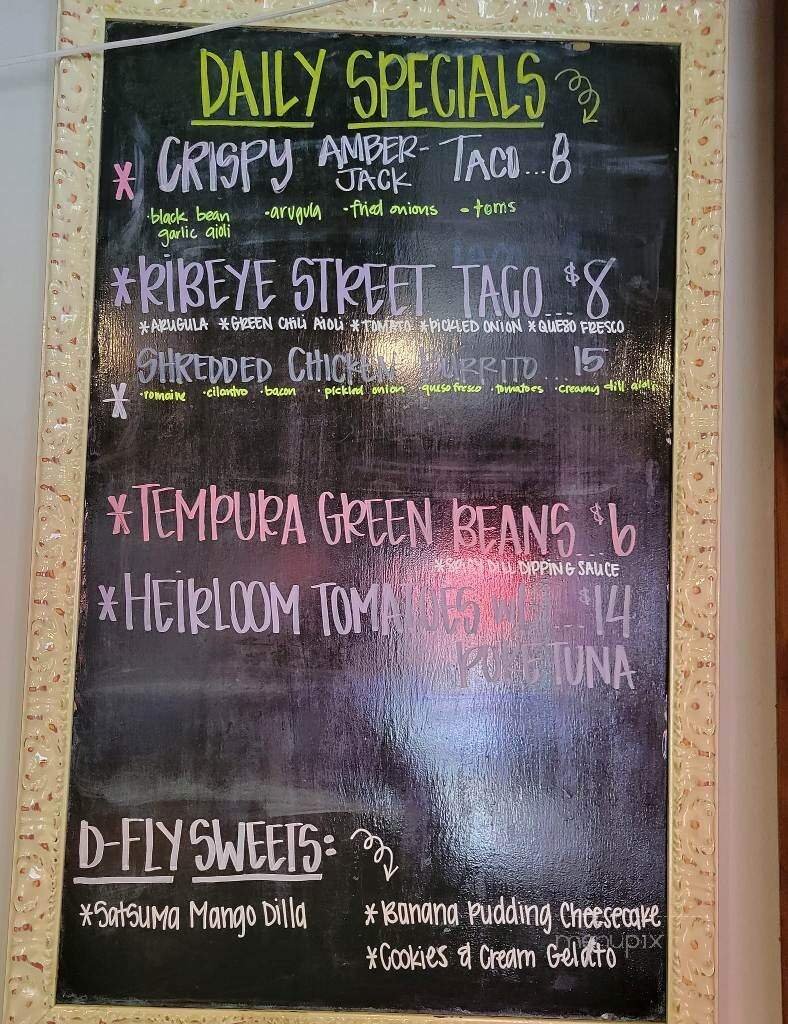 DAILY SPECIALS
* CRISPY AMBER-JACK TACO...8
·black bean garlic aioli ·arugula ·fried onions ·toms
*RIBEYE STREET TACO...$8
*ARUGULA *GREEN CHILI AIOLI *TOMATO *PICKLED ONION *QUESO FRESCO
* SHREDDED CHICKEN BURRITO...15
·romaine ·cilantro ·bacon ·pickled onion ·queso fresco ·tomatoes ·creamy dill aioli
*TEMPURA GREEN BEANS...$6
*SPICY DILL DIPPING SAUCE
*HEIRLOOM TOMATOES w/ ...$14
POKE TUNA
D-FLY SWEETS:
*Satsuma Mango Dilla
*Banana Pudding Cheesecake
*Cookies & Cream Gelato
menupix